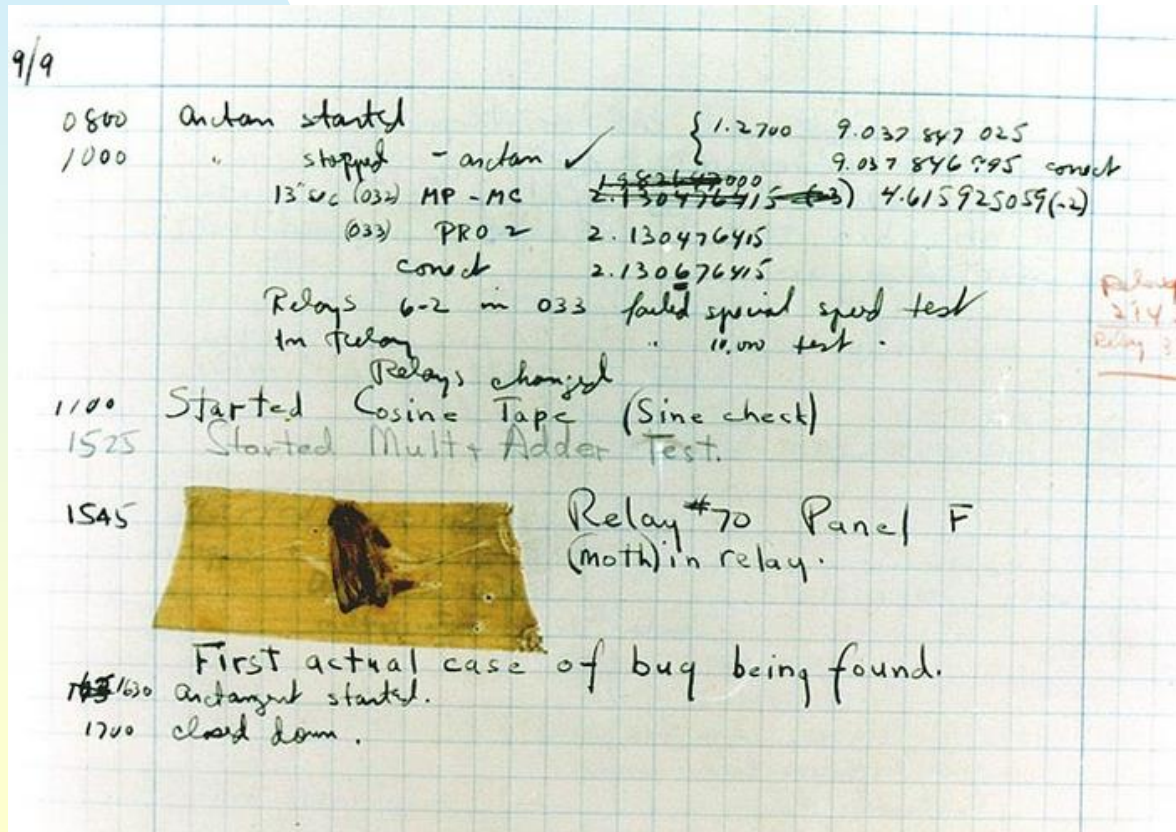 9/9
0800 Antan started { 1.2700 9.037 847 025
1000 " stopped - antan ✓ 9.037 846 995 correct
13" uc (032) MP - MC 1.982647000 2.130476415 (-3) 4.615925059(-2)
(033) PRO 2 2.130476415
correct 2.130676415
Relays 6-2 in 033 failed special speed test
In relay " 10,000 test.
Relays changed
1100 Started Cosine Tape (Sine check)
1525 Started Mult + Adder Test.
1545 Relay #70 Panel F
(moth) in relay.
First actual case of bug being found.
1630 antangent started.
1700 closed down.
Relay
Relay